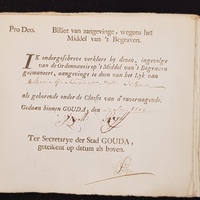 Pro Deo. Billet van aangevinge, wegens het
Middel van 't Begraven.
IK ondergeschreve verklare by dezen, ingevolge
van de Ordonnantie op 't Middel van 't Begraven
geëmaneert, aangevinge te doen van het Lyk van
als gehorende onder de Classis van d'onvermogende.
Gedaan binnen GOUDA, den
Ter Secretarye der Stad GOUDA,
geteekent op datum als boven.